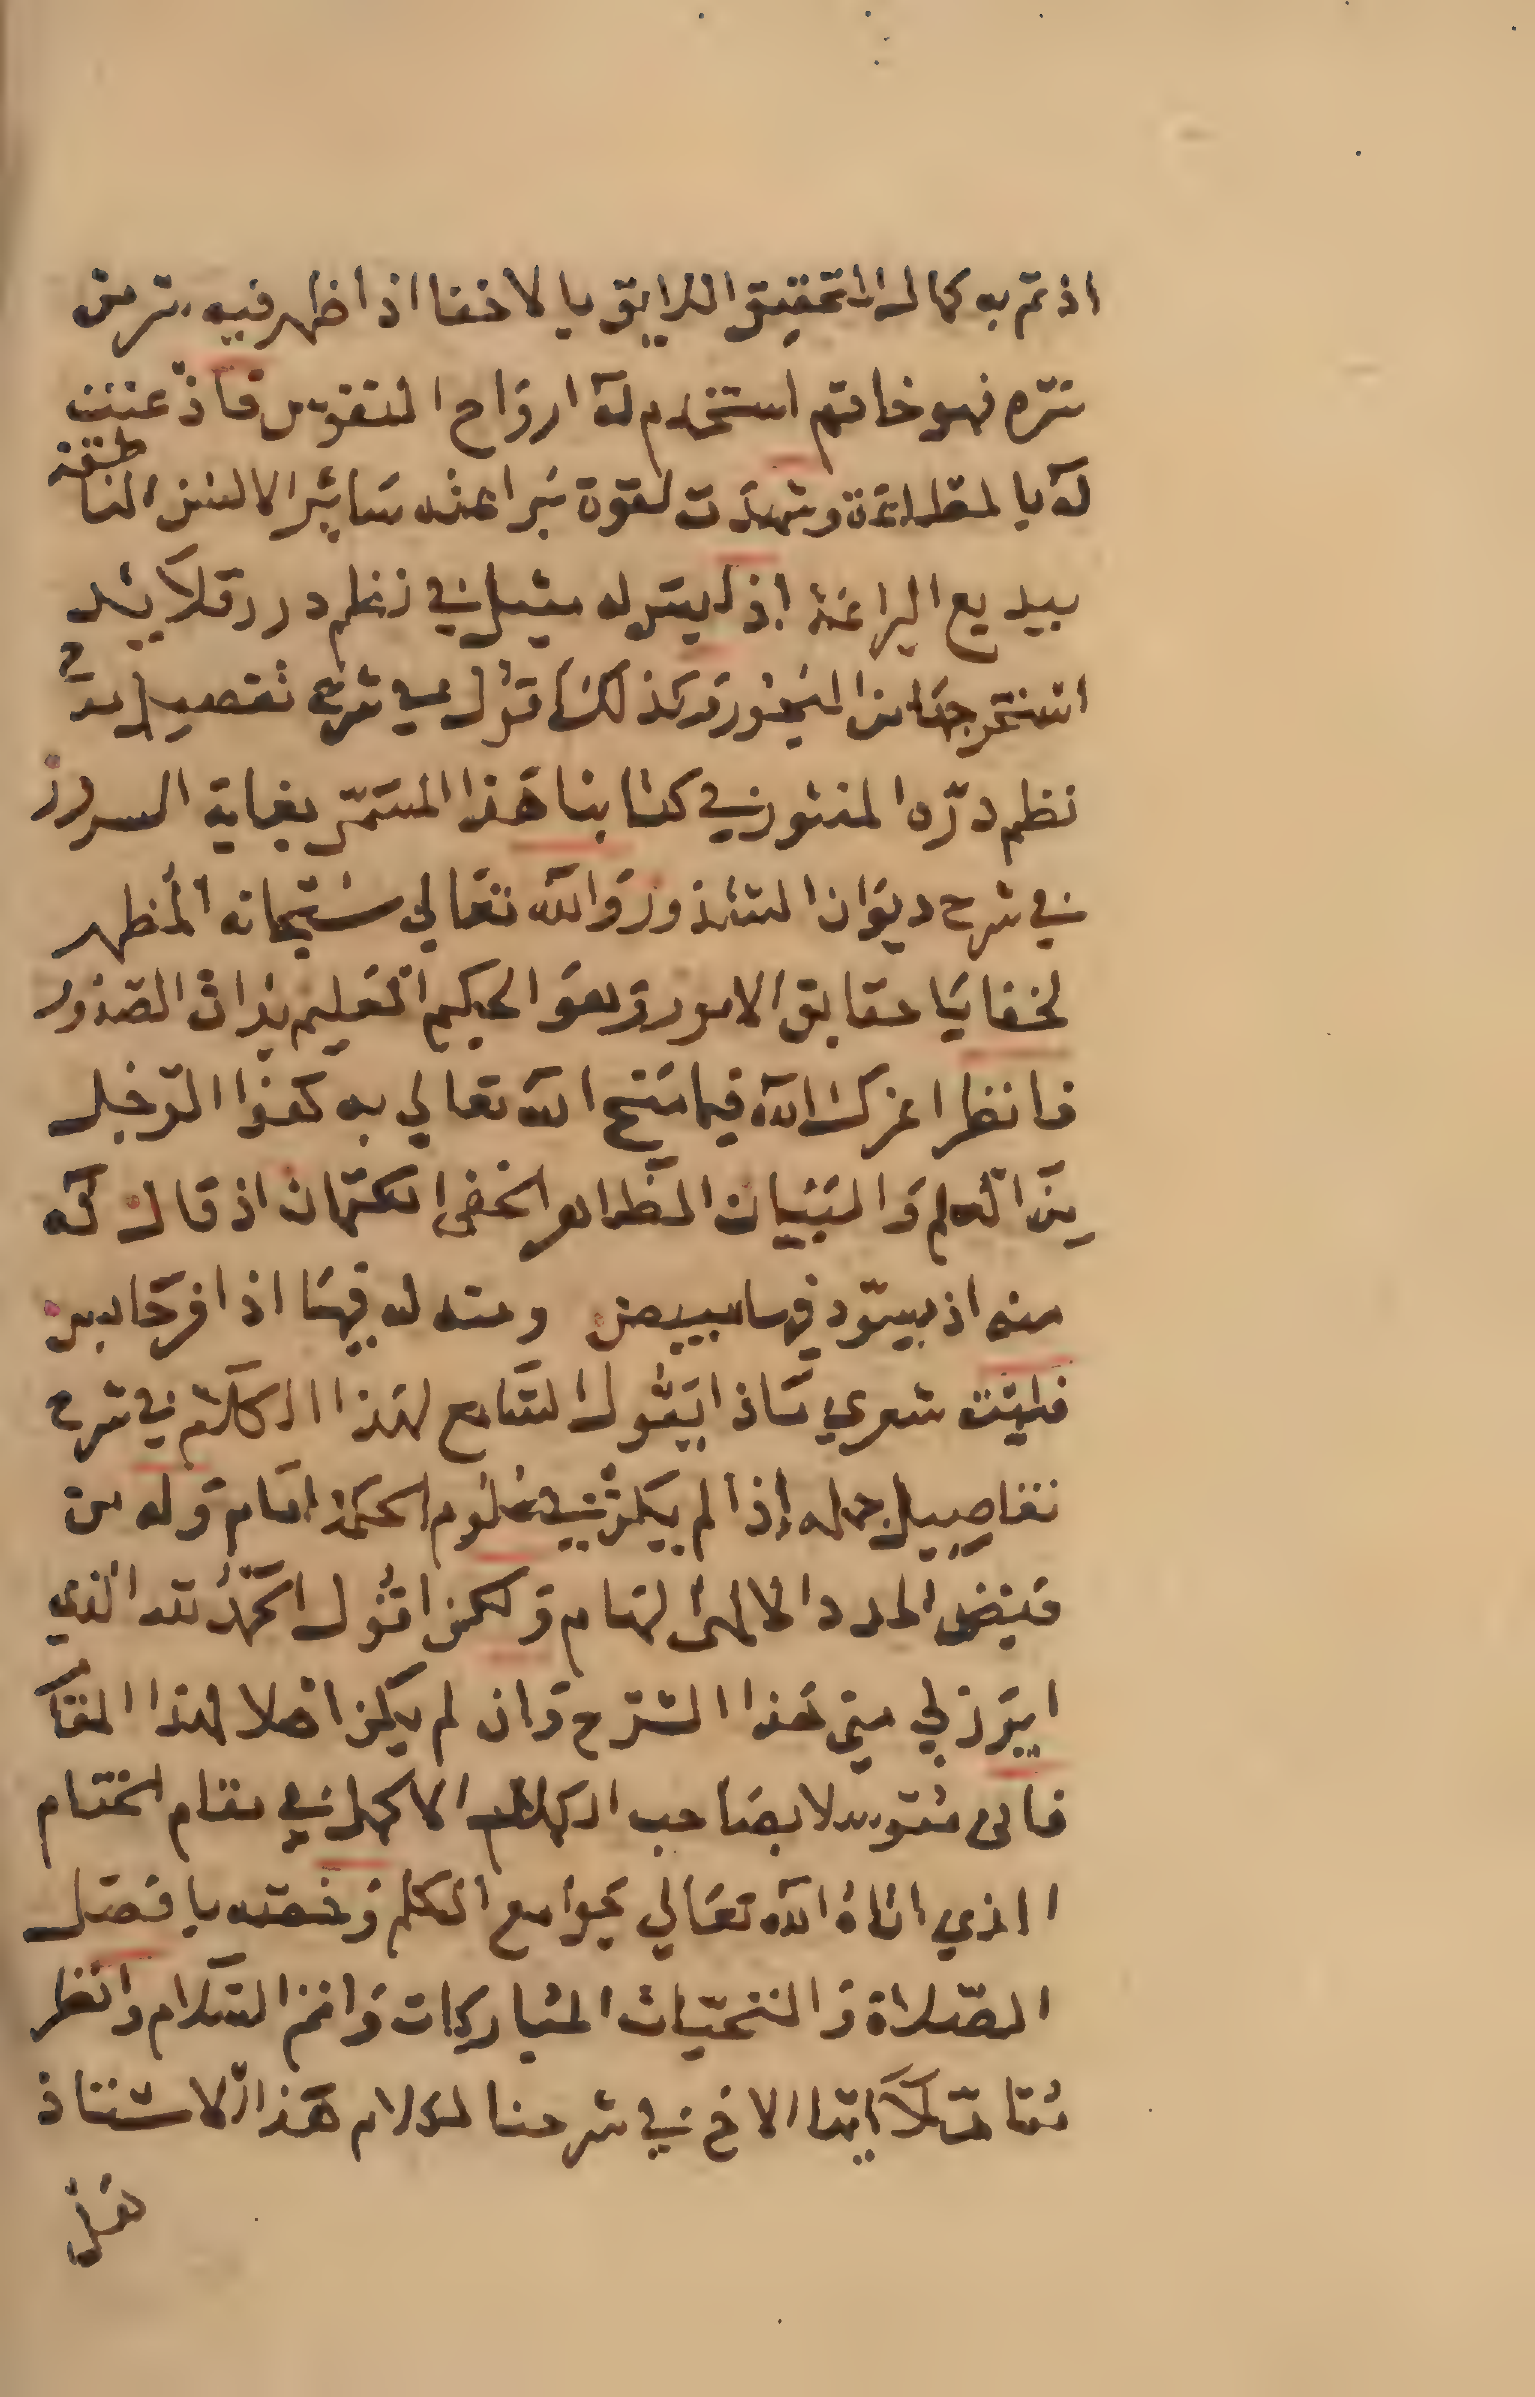 اذ تم به كمال التحقيق اللايق بالاخفا اذا ظهر فيه سر من
سره فهو خاتم استخدم له ارواح النفوس فاذعنت
له بالمطاعة وشهدت لقوة براعته ساير الالسن الناطقة
ببديع البراعة اذ ليس له مثيل في نظم درر قلايد
استخرجها من البحور وكذلك اقول في شرح تفصيل
نظم دره المنثور في كتابنا هذا المسمى بغاية السرور
في شرح ديوان الشذور والله تعالى سبحانه المظهر
لخفايا حقايق الامور وهو الحكيم العليم بذات الصدور
فانظر اعزك الله فيما منح الله تعالى به هذا الرجل
من العلم والتبيان الظاهر الخفي الكتمان اذ قال له
منه اذ يسود فيها ابيض ومنه له فيها اذا فرحا بس
فليت شعري ماذا يقول السامع لهذا الكلام في شرح
تفاصيل جمله اذا لم يكن في علوم الحكمة امام وله من
فيض المدد الالهي الهام ولكن اقول الحمد لله الذي
ابرز لي مني هذا الشرح وان لم يكن اهلا لهذا المقام
فاني متوسلا بصاحب الكلام الاكمل في مقام الختام
الذي اتاه الله تعالى بجوامع الكلم وخصه بافضل
الصلاة والتحيات المباركات واتم السلام وانظر
متاملا ايها الاخ في شرحنا لكلام هذا الاستاذ
هل